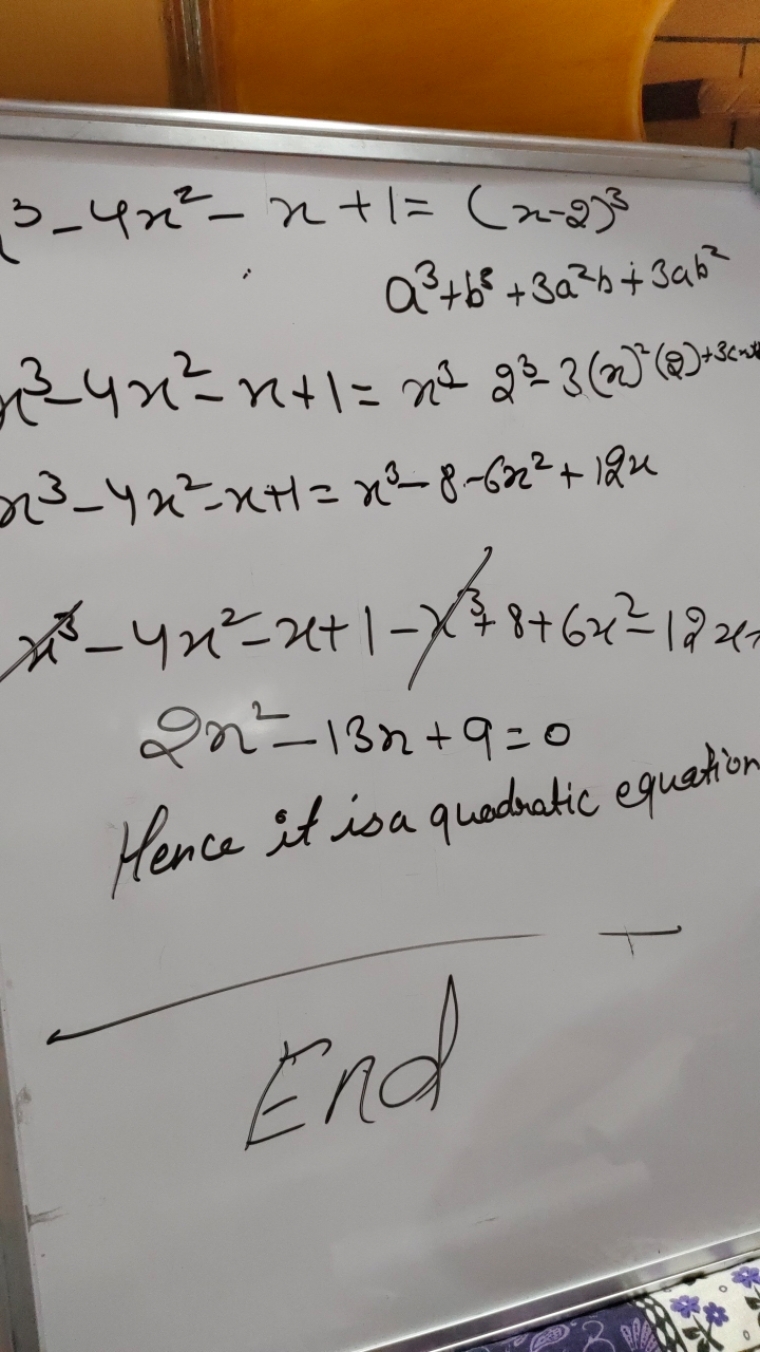 x³ - 4x² - x + 1 = (x-2)³
a³+b³ + 3a²b + 3ab²
x³ - 4x² - x + 1 = x³ - 2³ - 3(x)²(2) + 3(x)
x³ - 4x² - x + 1 = x³ - 8 - 6x² + 12x
x³ - 4x² - x + 1 - x³ + 8 + 6x² - 12x
2x² - 13x + 9 = 0
Hence it is a quadratic equation
End